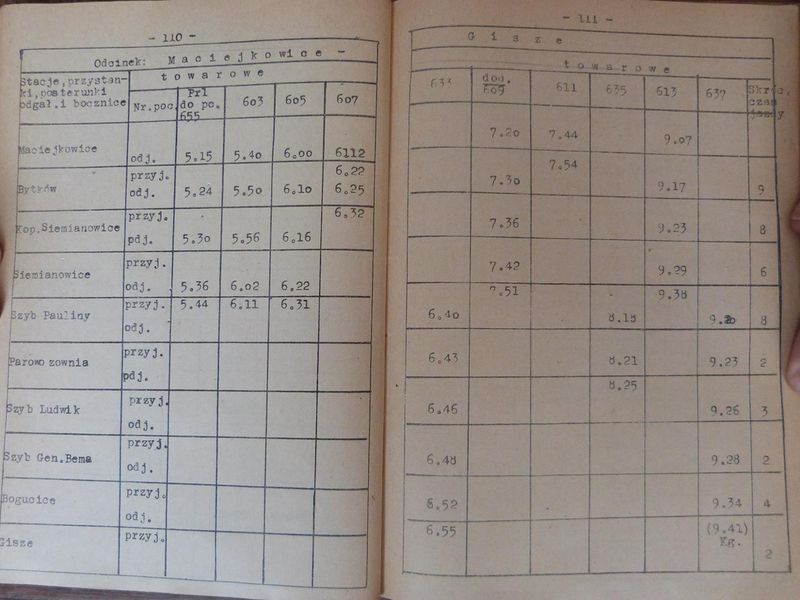 - 110 -
Odcinek: Maciejkowice -
Stacje,przystan-
ki,posterunki
odgał.i bocznice
towarowe
Nr.poc.
Prl
do pc.
655
603 605 607
Maciejkowice odj. 5.15 5.40 6.00 6112
Bytków przyj. 6.22
odj. 5.24 5.50 6.10 6.25
Kop.Siemianowice przyj. 6.32
pdj. 5.30 5.56 6.16
Siemianowice przyj.
odj. 5.36 6.02 6.22
Szyb Pauliny przyj. 5.44 6.11 6.31
odj.
Parowozownia przyj.
pdj.
Szyb Ludwik przyj.
odj.
Szyb Gen.Bema przyj.
odj.
Bogucice przyj.
odj.
Gisze przyj.
- 111 -
Gisze
towarowe
633
dod.
609
611 635 613 637
7.20 7.44 9.07
7.54
7.30 9.17 9
7.36 9.23 8
7.42 9.29 6
7.51 9.38
6.40 8.18 9.20 8
6.43 8.21 9.23 2
8.25
6.46 9.26 3
6.48 9.28 2
6.52 9.34 4
6.55 (9.41)
Kg.
2